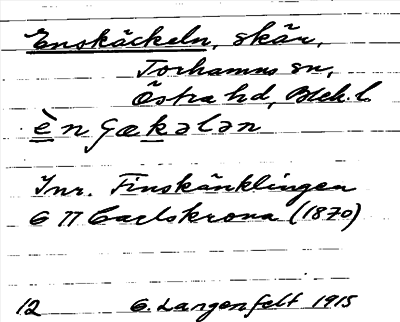 Enskäckeln, skär,
Torhamns sn,
Östra hd, Blek. l.
èn ʃækələn
Inr. Finskänklingen
G 77 Carlskrona (1870)
12 G. Langenfelt 1915